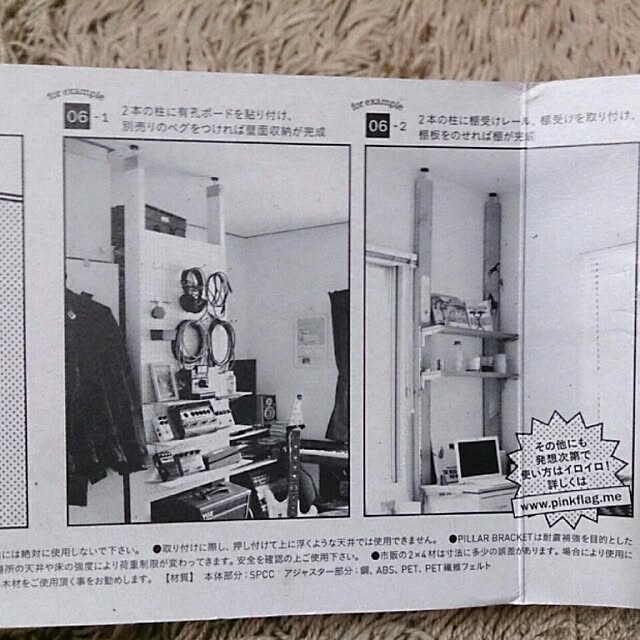 for example
06-1
2本の柱に有孔ボードを貼り付け、
別売りのペグをつければ壁面収納が完成
for example
06-2
2本の柱に棚受けレール、棚受けを取り付け、
棚板をのせれば棚が完成
その他にも
発想次第で
使い方はイロイロ!
詳しくは
www.pinkflag.me
には絶対に使用しないで下さい。 ●取り付けに際し、押し付けて上に浮くような天井では使用できません。 ●PILLAR BRACKETは耐震補強を目的とした
場所の天井や床の強度により荷重制限が変わってきます。安全を確認の上ご使用下さい。 ●市販の2×4材は寸法に多少の誤差があります。場合により使用に
木材をご使用頂く事をお勧めします。 【材質】 本体部分:SPCC アジャスター部分:鋼、ABS、PET、PET繊維フェルト